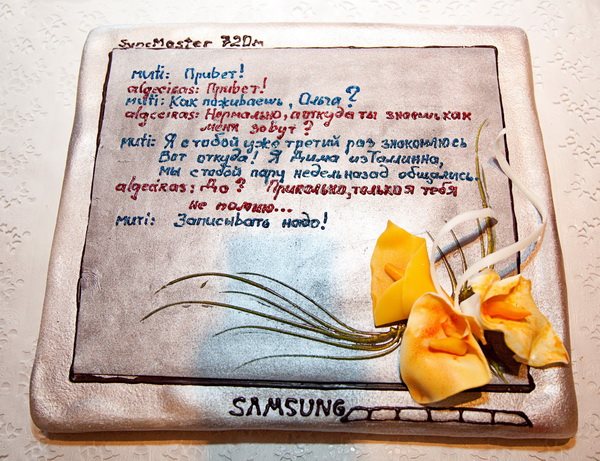 SyncMaster 720м
muti: Привет!
algeciras: Привет!
muti: Как поживаешь, Ольга?
algeciras: Нормально, а откуда ты знаешь как
меня зовут?
muti: Я с тобой уже третий раз знакомлюсь
Вот откуда! Я Дима из Таллинна,
мы с тобой пару недель назад общались.
algeciras: Да? Прикольно, только я тебя
не помню...
muti: Записывать надо!
SAMSUNG